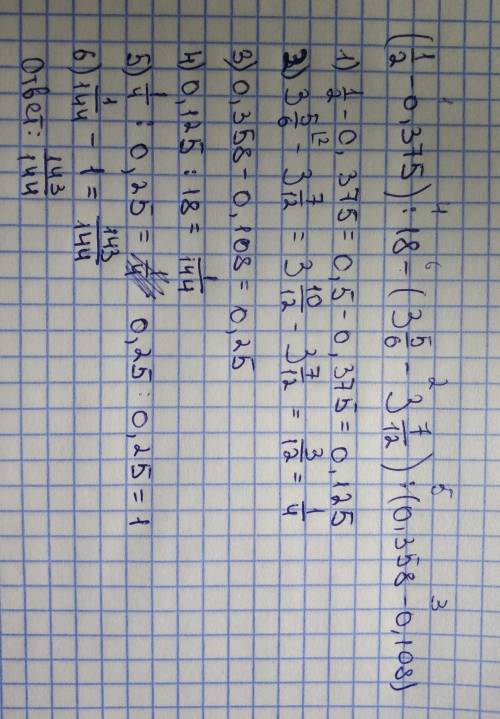 (1/2 - 0,375) : 18 - (3 5/6 - 3 7/12) : (0,358 - 0,108)
1) 1/2 - 0,375 = 0,5 - 0,375 = 0,125
2) 3 5/6 - 3 7/12 = 3 10/12 - 3 7/12 = 3/12 = 1/4
3) 0,358 - 0,108 = 0,25
4) 0,125 : 18 = 1/144
5) 1/4 : 0,25 = 0,25 : 0,25 = 1
6) 1/144 - 1 = 143/144
Ответ: 143/144